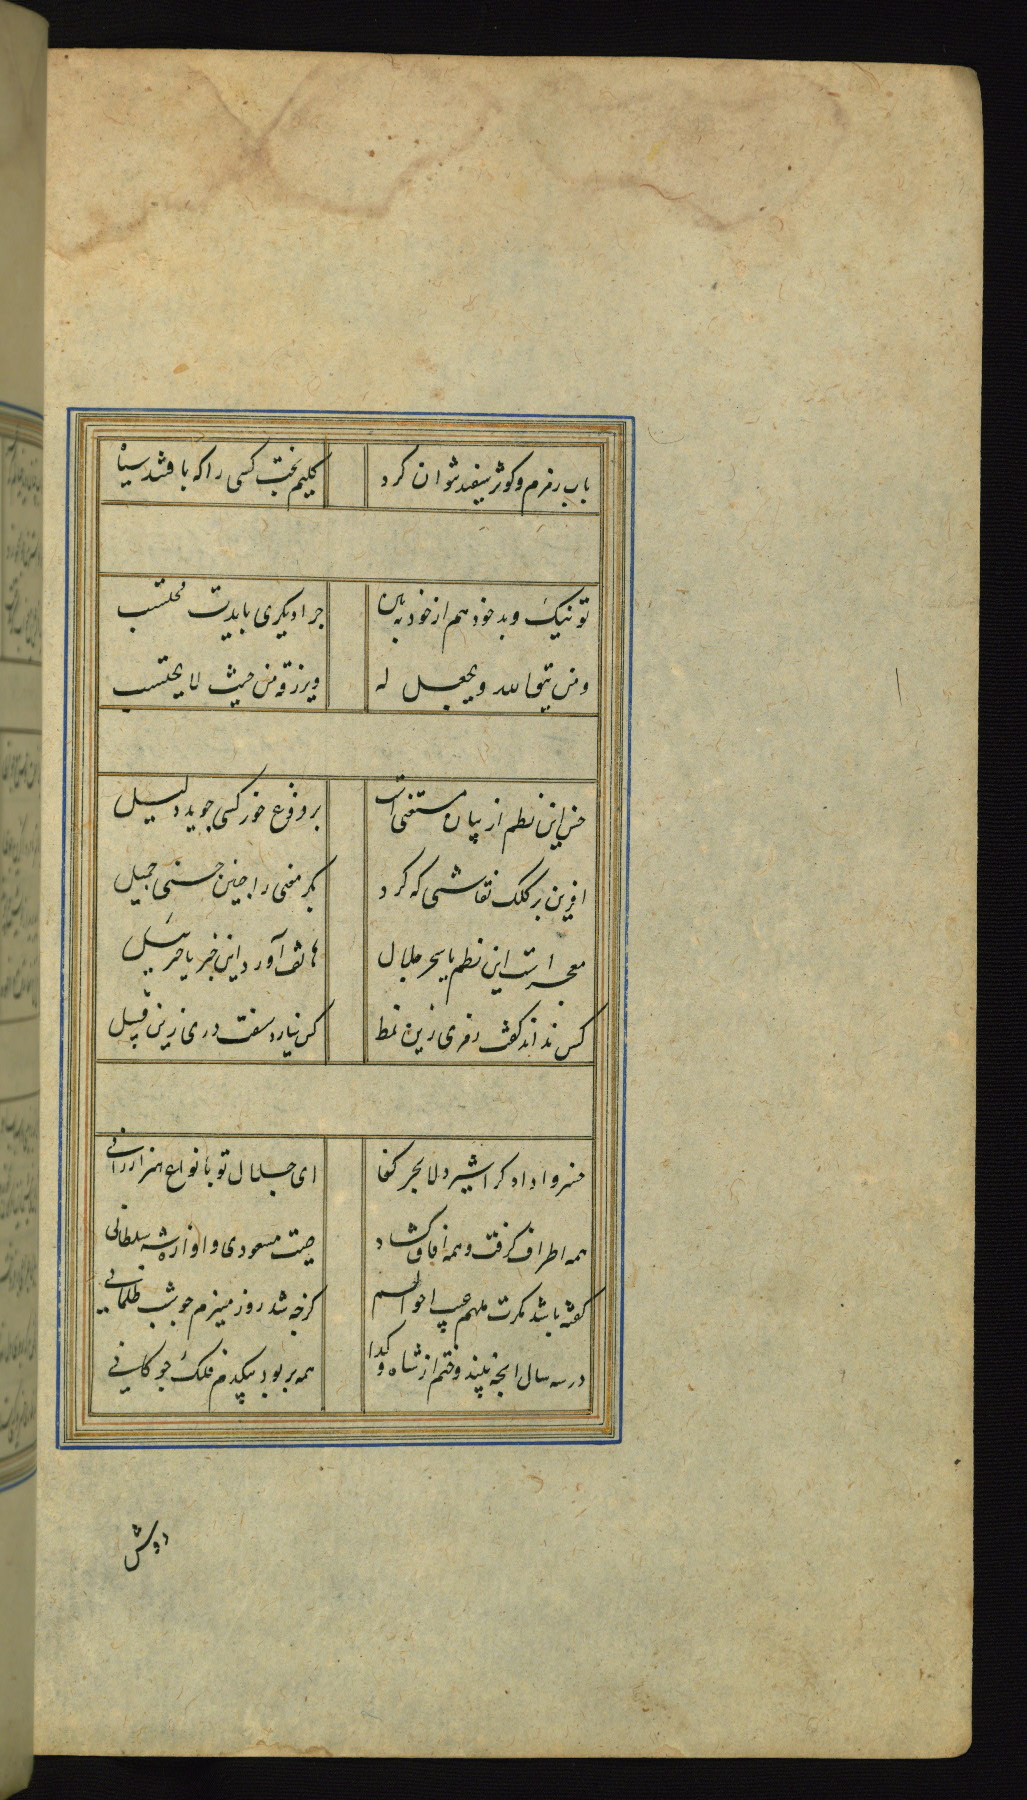 بآب زمزم و کوثر سفید نتوان کرد گلیم بخت کسی را که بافتند سیاه
تو نیک و بد خود هم از خود ببین چرا دیگری بایدت محتسب
ومن یتق الله ویجعل له ویرزقه من حیث لا یحتسب
حسن این نظم از بیان مستغنی است بر فروغ خور کسی جوید دلیل
آفرین بر کلک نقاشی که کرد بکر معنی را چنین حسنی جمیل
معجزست این نظم یا سحر حلال هاتف آورد این خبر یا جبرئیل
کس نداند گفت رمزی زین نمط کس نیارد سفت دری زین قبیل
خسروا دادگرا شیردلا بحر کفا ای جلال تو بانواع هنر ارزانی
همه اطراف گرفت و همه آفاق گشاد صیت مسعودی و آوازه شه سلطانی
گفته باشد مکرت ملهم غیب احوالم کزچه شد روز منیرم چو شب ظلمانی
در سه سال آنچه بیندوختم از شاه و گدا همه بربود بیکدم فلک چوگانی
دوش